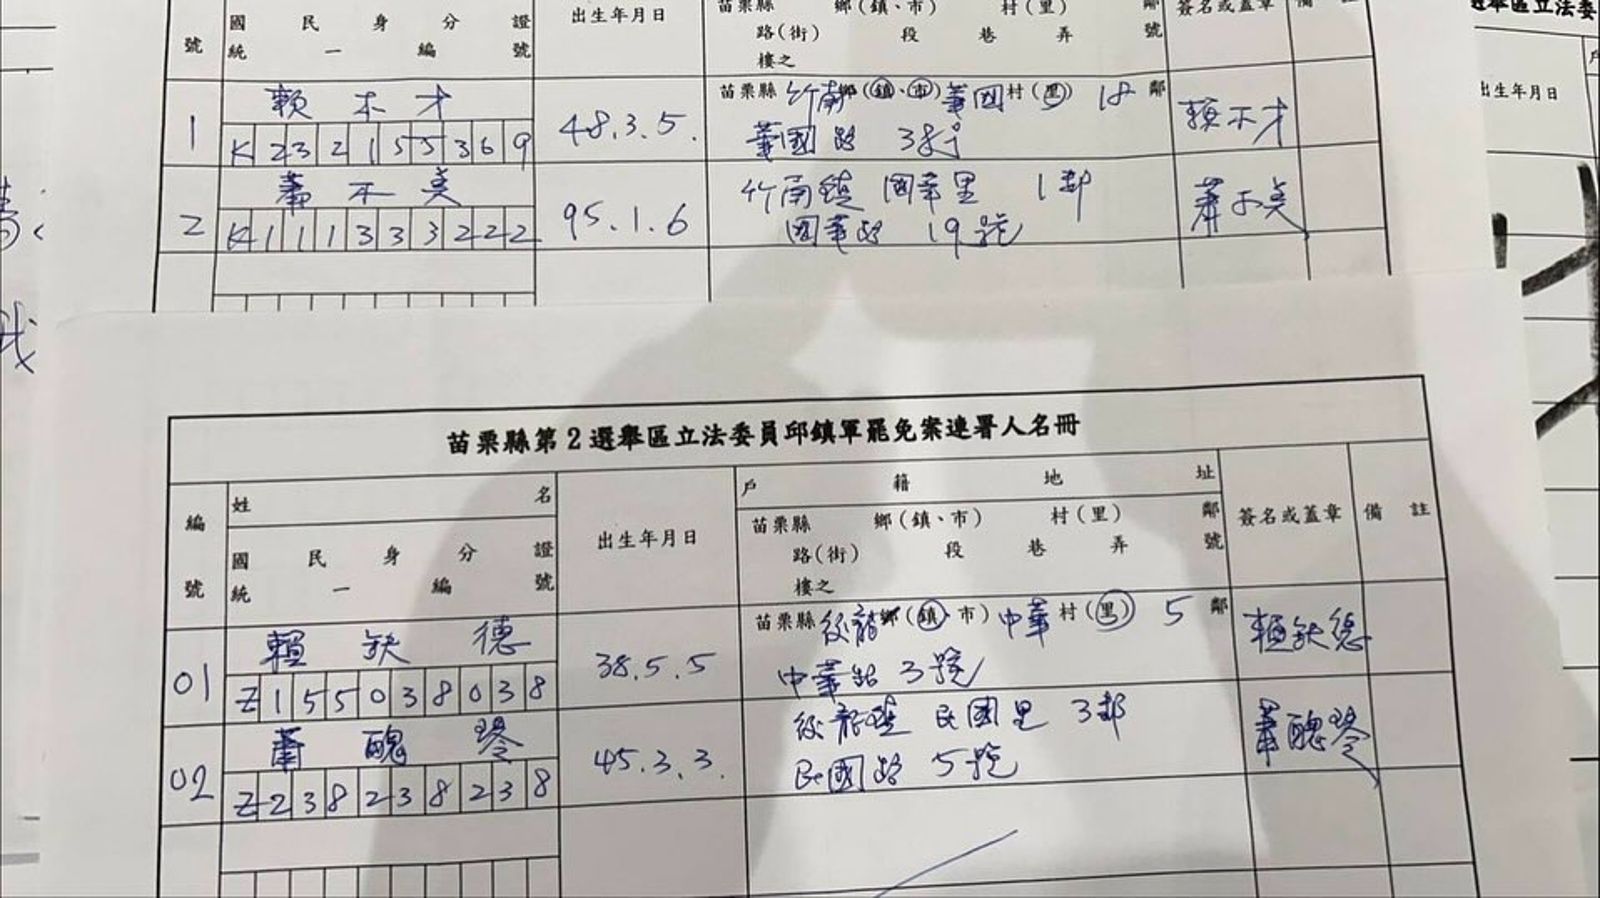 國民身分證
統一編號
號
出生年月日
苗栗縣 鄉(鎮、市) 村(里) 鄰
路(街) 段 巷 弄 號
樓之
簽名或蓋章
備註
1
賴不才
K232155369
48.3.5.
苗栗縣竹南鄉(鎮、市)華國村(里)18鄰
華國路 38号
賴不才
2
蕭不美
K111333222
95.1.6
竹南鎮 國華里 1鄰
國華路 19號
蕭不美
選舉區立法委
出生年月日
苗栗縣第2選舉區立法委員邱鎮軍罷免案連署人名冊
編號
姓名
國民身分證
統一編號
出生年月日
戶籍地址
苗栗縣 鄉(鎮、市) 村(里) 鄰
路(街) 段 巷 弄 號
樓之
簽名或蓋章
備註
01
賴缺德
Z155038038
38.5.5
苗栗縣後龍鄉(鎮、市)中華村(里)5鄰
中華路 3號
賴缺德
02
蕭醜琴
Z238238238
45.3.3.
後龍鎮 民國里 3鄰
民國路 5號
蕭醜琴